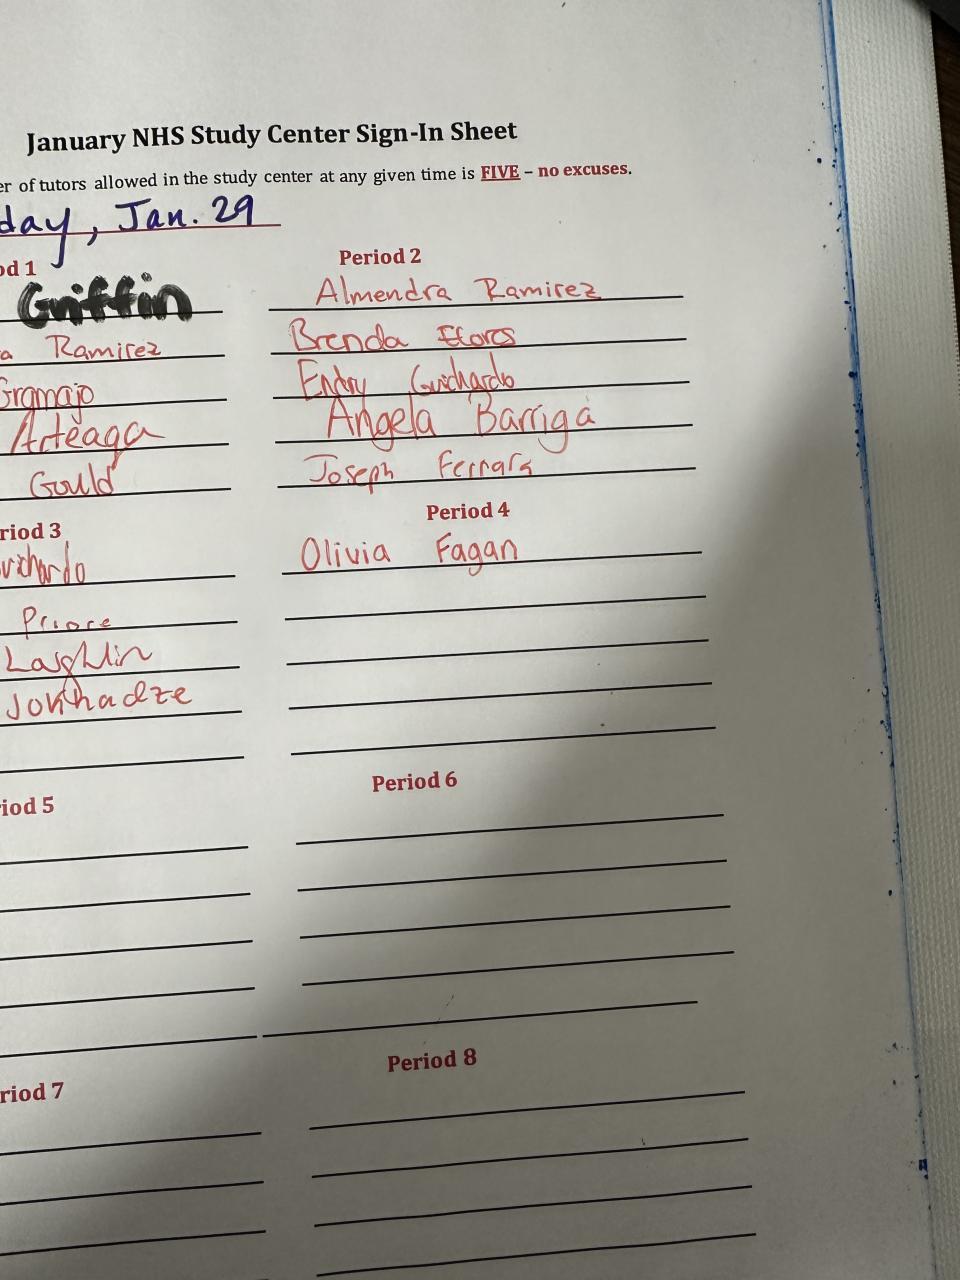 January NHS Study Center Sign-In Sheet
er of tutors allowed in the study center at any given time is FIVE – no excuses.
day, Jan. 29
od 1
Griffin
a Ramirez
Gramajo
Arteaga
Gould
Period 2
Almendra Ramirez
Brenda
Endry Guichardo
Angela Barriga
Joseph Ferrara
riod 3
uichardo
Priore
Laughlin
Jokhadze
Period 4
Olivia Fagan
iod 5
Period 6
riod 7
Period 8